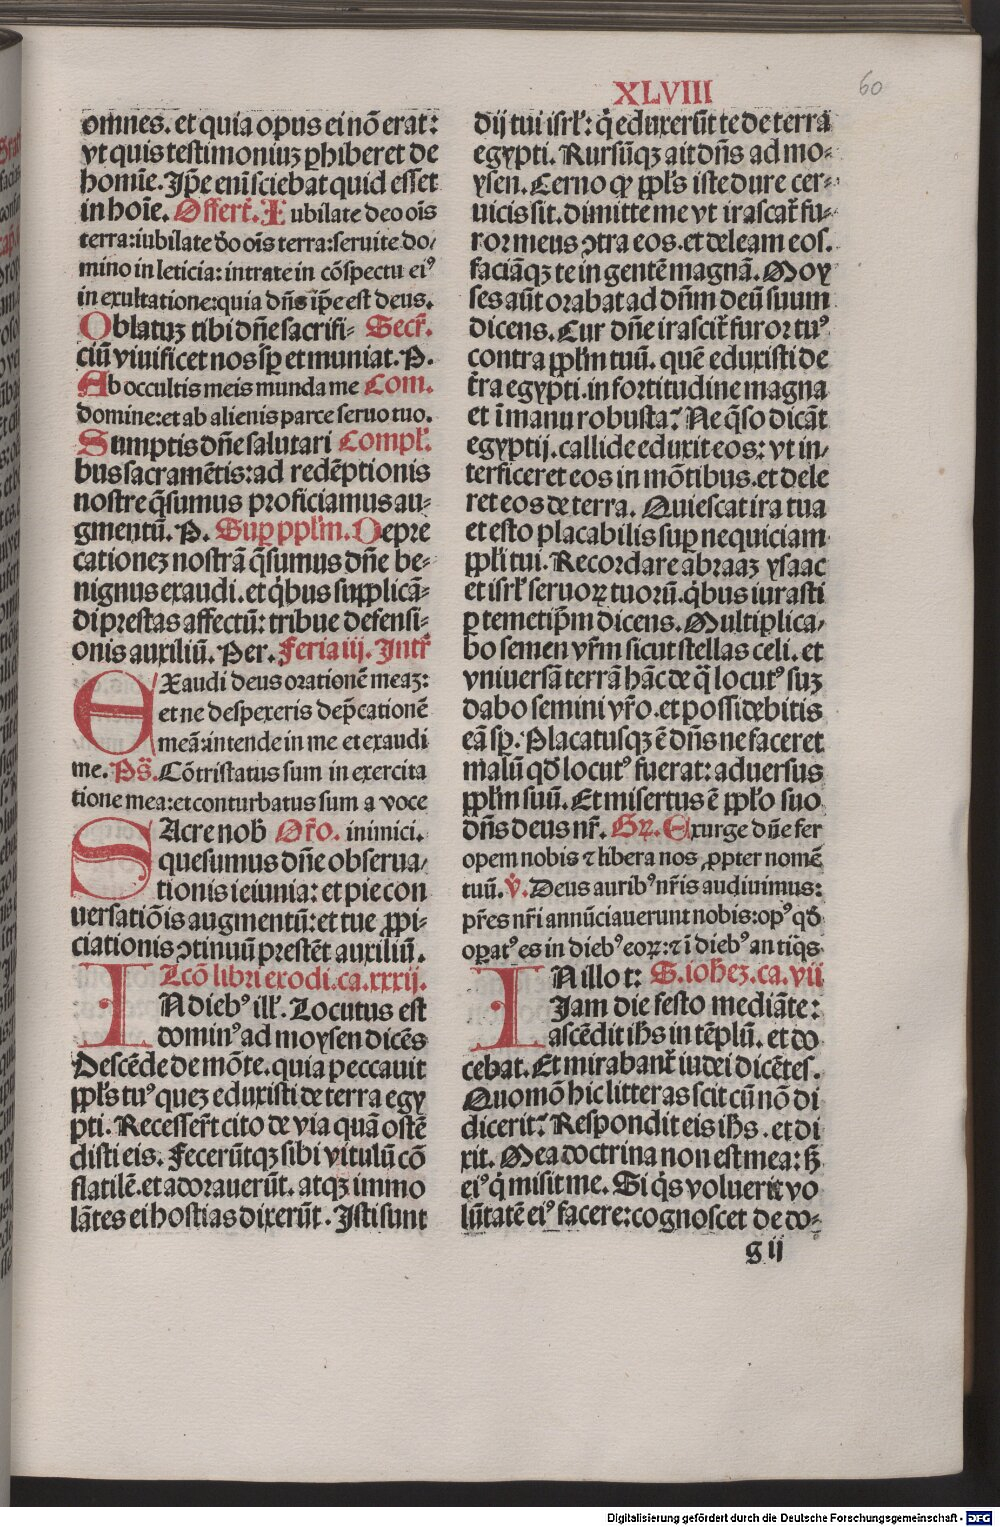 XLVIII
60
omnes. et quia opus ei nõ erat:
vt quis testimoniuꝫ ꝑhiberet de
homīe. Ip̄e enī sciebat quid esset
in hoīe. Offert̃. Iubilate deo oīs
terra: iubilate d̄o oīs terra: seruite do/
mino in leticia: intrate in cõspectu eiꝰ
in exultatione: quia dñs ip̄e est deus.
Oblatuꝫ tibi dñe sacrifi- Secr̃.
ciũ viuificet nos sꝑ et muniat. P.
Ab occultis meis munda me Com.
domine: et ab alienis parce seruo tuo.
Sumptis dñe salutari Compl̃.
bus sacramẽtis: ad redẽptionis
nostre q̃sumus proficiamus au-
gmentũ. P. Suꝑ ppl̃m. Depre
cationeꝫ nostrã q̃sumus dñe be-
nignus exaudi. et q̇bus supplicã-
di prestas affectũ: tribue defensi-
onis auxiliũ. Per. Feria iij. Intr̃
EXaudi deus orationẽ meaꝫ:
et ne despexeris dep̃cationẽ
meã: intende in me et exaudi
me. Ps̃. Cõtristatus sum in exercita
tione mea: et conturbatus sum a voce
SAcre nob̃ Or̃o. inimici.
quesumus dñe obserua/
tionis ieiunia: et pie con
uersatiõis augmentũ: et tue ꝓpi-
ciationis ꝯtinuũ prestẽt auxiliũ.
Lcõ libri exodi. ca. xxxij.
IN diebꝰ ill̃. Locutus est
dominꝰ ad moysen dicẽs
Descẽde de mõte. quia peccauit
ppl̃s tuꝰ queꝫ eduxisti de terra egy
pti. Recesser̃t cito de via quã ostẽ
disti eis. Fecerũtqꝫ sibi vitulũ cõ
flatilẽ. et adorauerũt. atqꝫ immo
lãtes ei hostias dixerũt. Isti sunt
dij tui isrl̃: q̇ eduxerũt te de terra
egypti. Rursũqꝫ ait dñs ad mo-
ysen. Cerno ꝙ ppl̃s iste dure cer-
uicis sit. dimitte me vt irascat̃ fu-
ror meus ꝯtra eos. et deleam eos.
faciãqꝫ te in gentẽ magnã. Moy
ses aũt orabat ad dñm deũ suum
dicens. Cur dñe irascit̃ furor tuꝰ
contra ppl̃m tuũ. quẽ eduxisti de
t̃ra egypti. in fortitudine magna
et ĩ manu robusta? Ne q̃so dicãt
egyptij. callide eduxit eos: vt in-
terficeret eos in mõtibus. et dele
ret eos de terra. Quiescat ira tua
et esto placabilis suꝑ nequiciam
ppl̃i tui. Recordare abraaꝫ ysaac
et isrl̃ seruoꝝ tuorũ. q̇bus iurasti
ꝑ temetip̃m dicens. Multiplica/
bo semen vr̃m sicut stellas celi. et
vniuersã terrã hãc de q̃ locutꝰ suꝫ
dabo semini vr̃o. et possidebitis
eã sꝑ. Placatusqꝫ ẽ dñs ne faceret
malũ qd̃ locutꝰ fuerat: aduersus
ppl̃m suũ. Et misertus ẽ ppl̃o suo
dñs deus nr̃. Gr̃. Exurge dñe fer
opem nobis ⁊ libera nos ꝓpter nomẽ
tuũ. ℣. Deus auribꝰ nr̃is audiuimus:
pr̃es nr̃i annũciauerunt nobis: opꝰ qd̃
oꝑatꝰ es in diebꝰ eoꝝ: ⁊ ĩ diebꝰ antiq̇s.
IN illo t: S. iohẽꝫ. ca. vii
Iam die festo mediãte:
ascẽdit ih̃s in tẽplũ. et do
cebat. Et mirabant̃ iudei dicẽtes.
Quomõ hic litteras scit cũ nõ di
dicerit? Respondit eis ih̃s. et di
xit. Mea doctrina non est mea: sꝫ
eiꝰ q̇ misit me. Si q̇s voluerit vo
lũtatẽ eiꝰ facere: cognoscet de do-
g ij
Digitalisierung gefördert durch die Deutsche Forschungsgemeinschaft - DFG